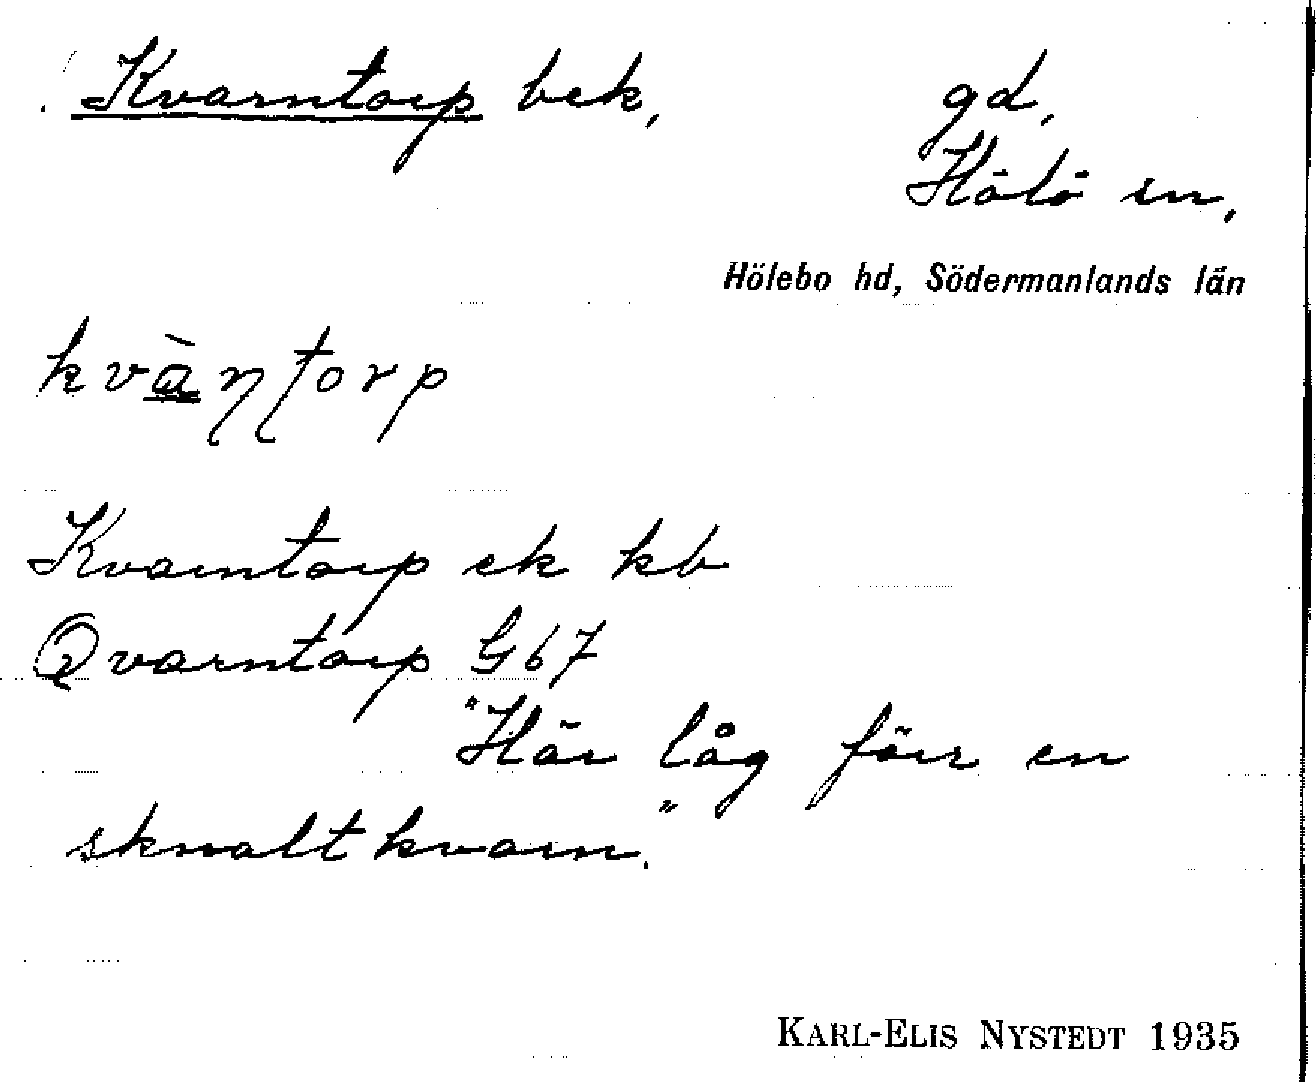 Kvarntorp bek,
gd,
Hölö sn,
Hölebo hd, Södermanlands län
kvàṇʈorp
Kvarntorp ek kb
Qvarntorp G67
"Här låg förr en
skvaltkvarn."
KARL-ELIS NYSTEDT 1935